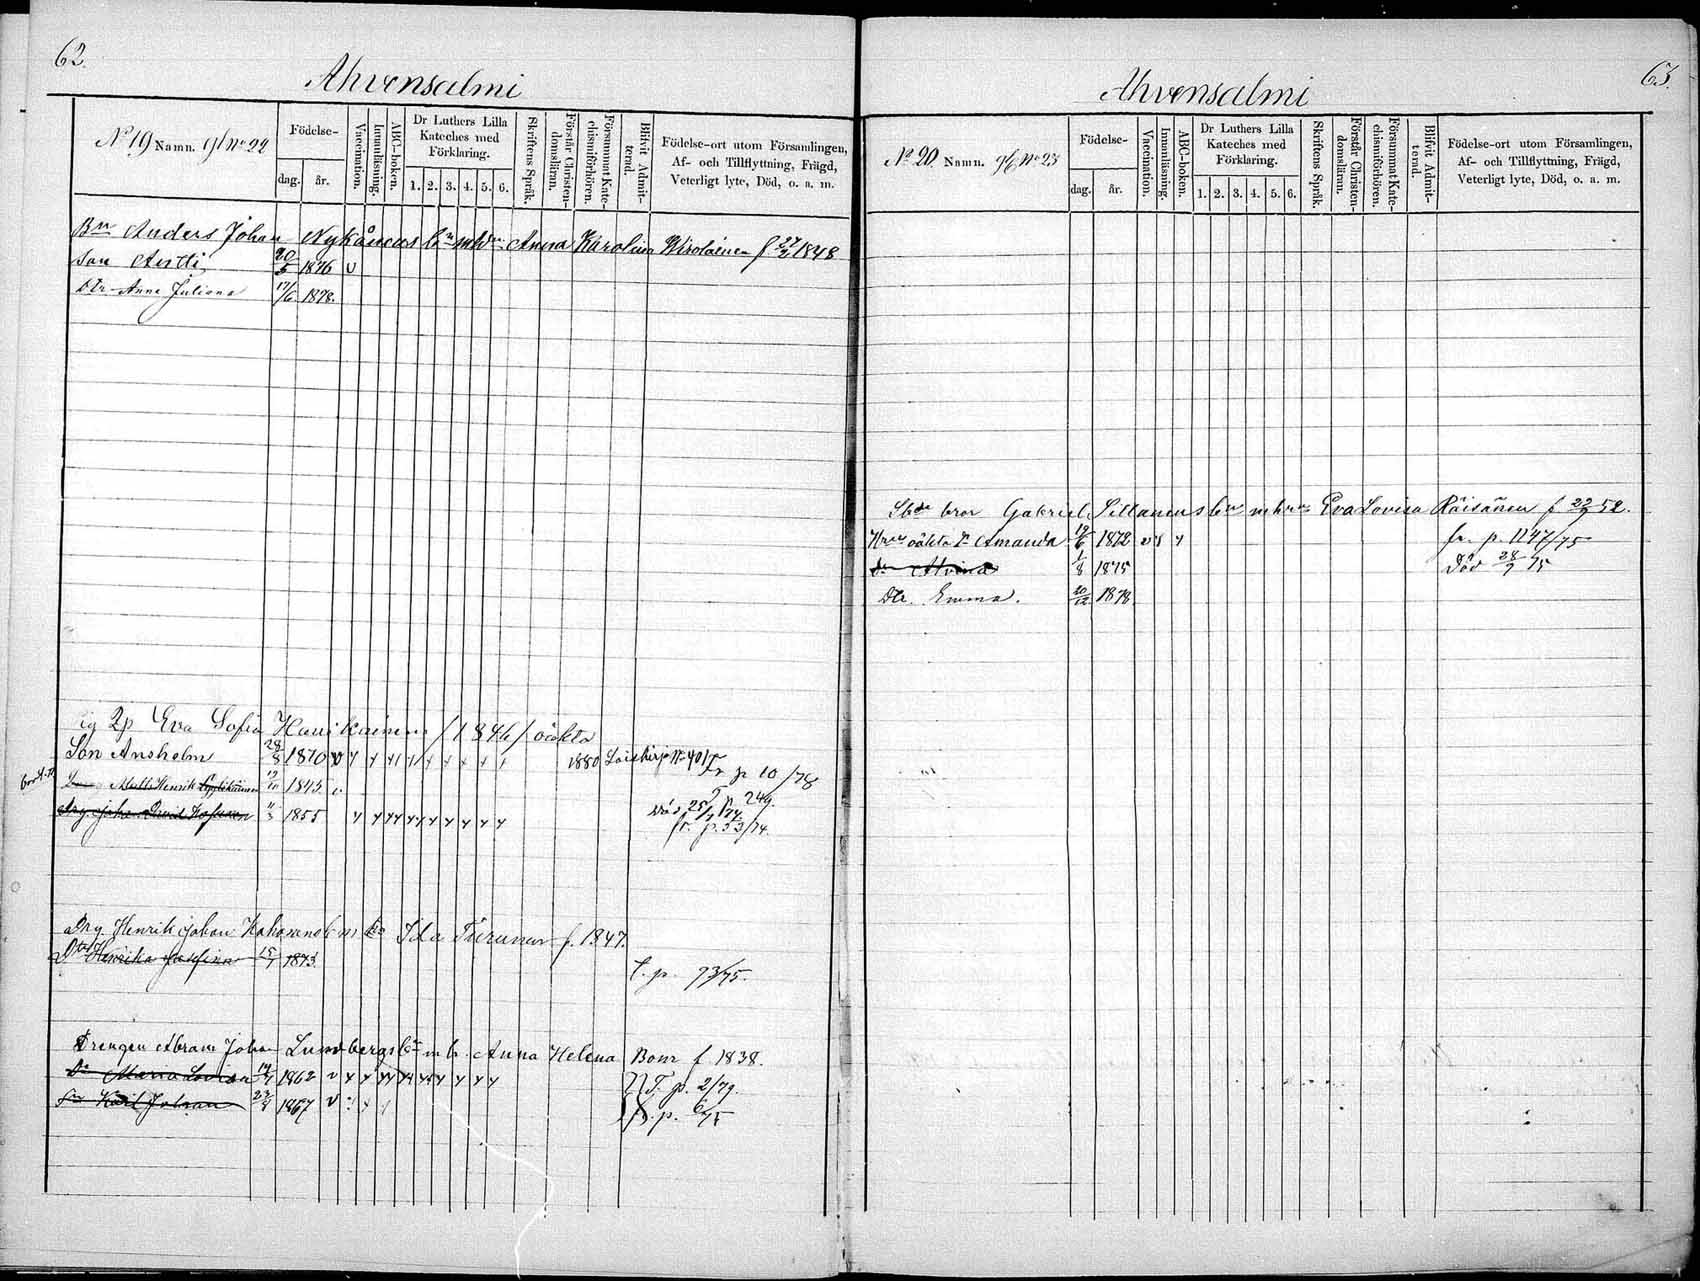 62.
Ahvensalmi
No 19 Namn. gl No 22
Födelse-
dag. år.
Vaccination.
Innanläsning.
ABC-boken.
Dr Luthers Lilla Kateches med Förklaring.
1. 2. 3. 4. 5. 6.
Skriftens Språk.
Förstår Christendomsläran.
Försummat Katechismiförhören.
Blifvit Admitterad.
Födelse-ort utom Församlingen, Af- och Tillflyttning, Frägd, Veterligt lyte, Död, o. a. m.
Bn Anders Johan Nykänens bn mhu Anna Karolina f 27/2 1848
Son Antti 20/5 1876 v
Dtr Anna Juliana 17/6 1878.
Eva Sofia Haurikainen /1846/ oäkta
Son Ansholm 28/8 1870 v 1880
Matts Henrik 1845 v. Fr p 10/78
T p 249.
Drg Joh. David 11/3 1855 Död 25/7 74.
fr. p. 53/74.
Drg Henrik Johan Ida Turunen f. 1847.
Dtr Henrika Josefina 15/7 1873.
T. p. 73/75.
Drengen Abram Johan Lundbergs bn m h. Anna Helena Bom f 1838.
Dr Maria Lovisa 1862 v T. p. 2/79.
Sn Karl Johan 1867 v p. 6/75
63.
Ahvensalmi
No 20. Namn. gl No 23
Födelse-
dag. år.
Vaccination.
Innanläsning.
ABC-boken.
Dr Luthers Lilla Kateches med Förklaring.
1. 2. 3. 4. 5. 6.
Skriftens Språk.
Förstår Christendomsläran.
Försummat Katechismiförhören.
Blifvit Admitterad.
Födelse-ort utom Församlingen, Af- och Tillflyttning, Frägd, Veterligt lyte, Död, o. a. m.
bror Gabriel Siltanens bn mhru Eva Lovisa Räisänen f 22/9 52.
Hrus oäkta Dr Amanda 19/6 1872 fr. p. 1147/75
Dr Alvina 1/8 1875 Död 28/9 75
Dtr. Emma. 20/12 1878